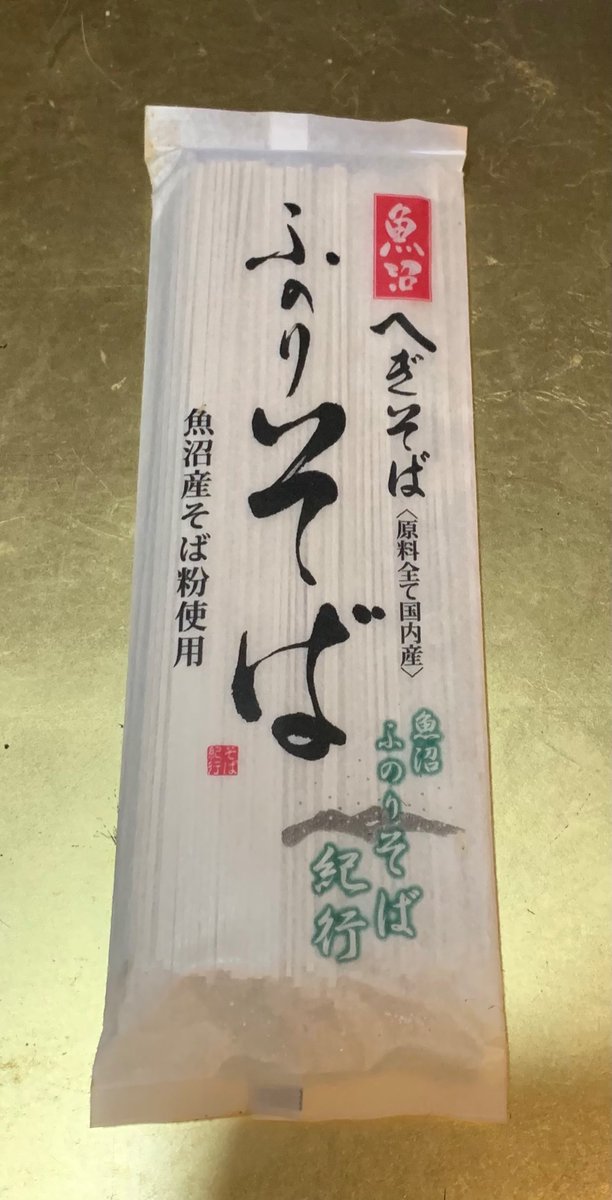 魚沼
へぎそば
〈原料全て国内産〉
ふのりそば
魚沼産そば粉使用
そば
紀行
魚沼
ふのりそば
紀行